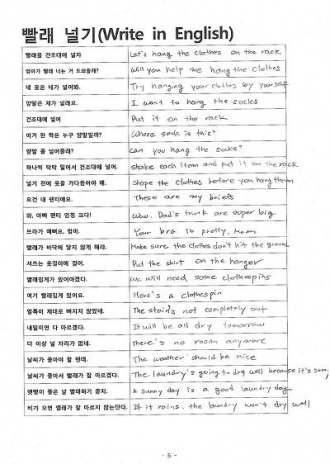 빨래 널기(Write in English)
빨래를 건조대에 널자 Let's hang the clothes on the rack
엄마가 빨래 너는 거 도와줄래? Will you help me hang the clothes
네 옷은 네가 널어봐. Try hanging your clothes by yourself
양말은 제가 널래요. I want to hang the socks
건조대에 널어 Put it on the rack
이거 한 짝은 누구 양말일까? Whose sock is this?
양말 좀 널어줄래? can you hang the socks?
하나씩 탁탁 털어서 건조대에 널어. shake each item and put it on the rack
널기 전에 옷을 가다듬어야 해. Shape the clothes before you hang them
요건 내 팬티에요. These are my briefs
와, 아빠 팬티 엄청 크다! Wow. Dad's trunk are super big
브라가 예뻐요, 엄마. Your bra is pretty, Mom
빨래가 바닥에 닿지 않게 해라. Make sure the clothes don't hit the ground
셔츠는 옷걸이에 걸어. Put the shirt on the hanger
빨래집게가 있어야겠다. We will need some clothespins
여기 빨래집게 있어요. Here's a clothespin
얼룩이 제대로 빠지지 않았네. The stain's not completely out
내일이면 다 마르겠다. It will be all dry tomorrow
더 이상 널 자리가 없네. There's no room anymore
날씨가 좋아야 할 텐데. The weather should be nice
날씨가 좋아서 빨래가 잘 마르겠다. The laundry's going to dry well because it's sunny
햇빛이 좋은 날 빨래하기 좋지. A sunny day is a good laundry day
비가 오면 빨래가 잘 마르지 않는단다. If it rains, the laundry won't dry well
- 5 -